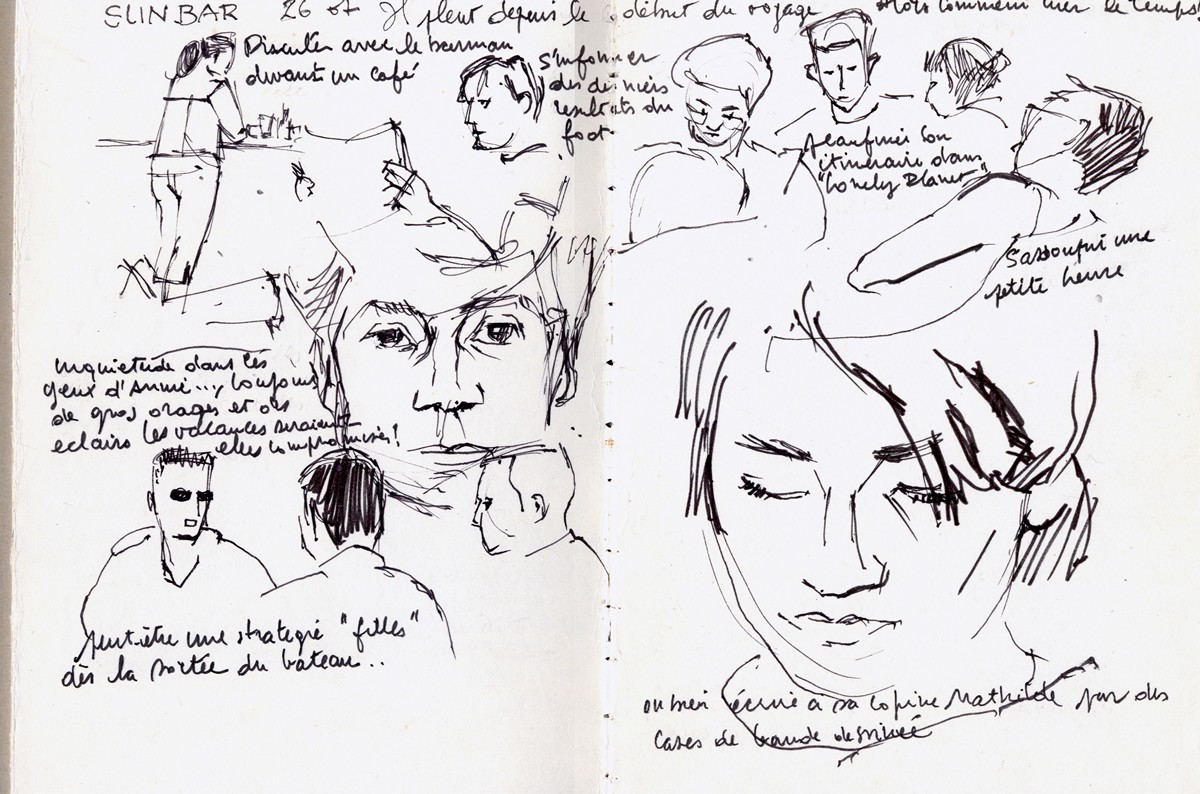 SUN BAR 26 07 Il pleut depuis le début du voyage Alors comment tuer le temps
Discuter avec le barman
devant un café
S'informer
des derniers
resultats du
foot
Peaufiner son
itineraire dans
"Lonely Planet"
S'assoupir une
petite heure
Inquietude dans les
yeux d'Anne..., toujours
de gros orages et des
eclairs les vacances seraient
elles compromises!
peut-être une strategie "filles"
dès la sortie du bateau..
ou bien écrire à sa copine Mathilde par des
cases de bande dessinée